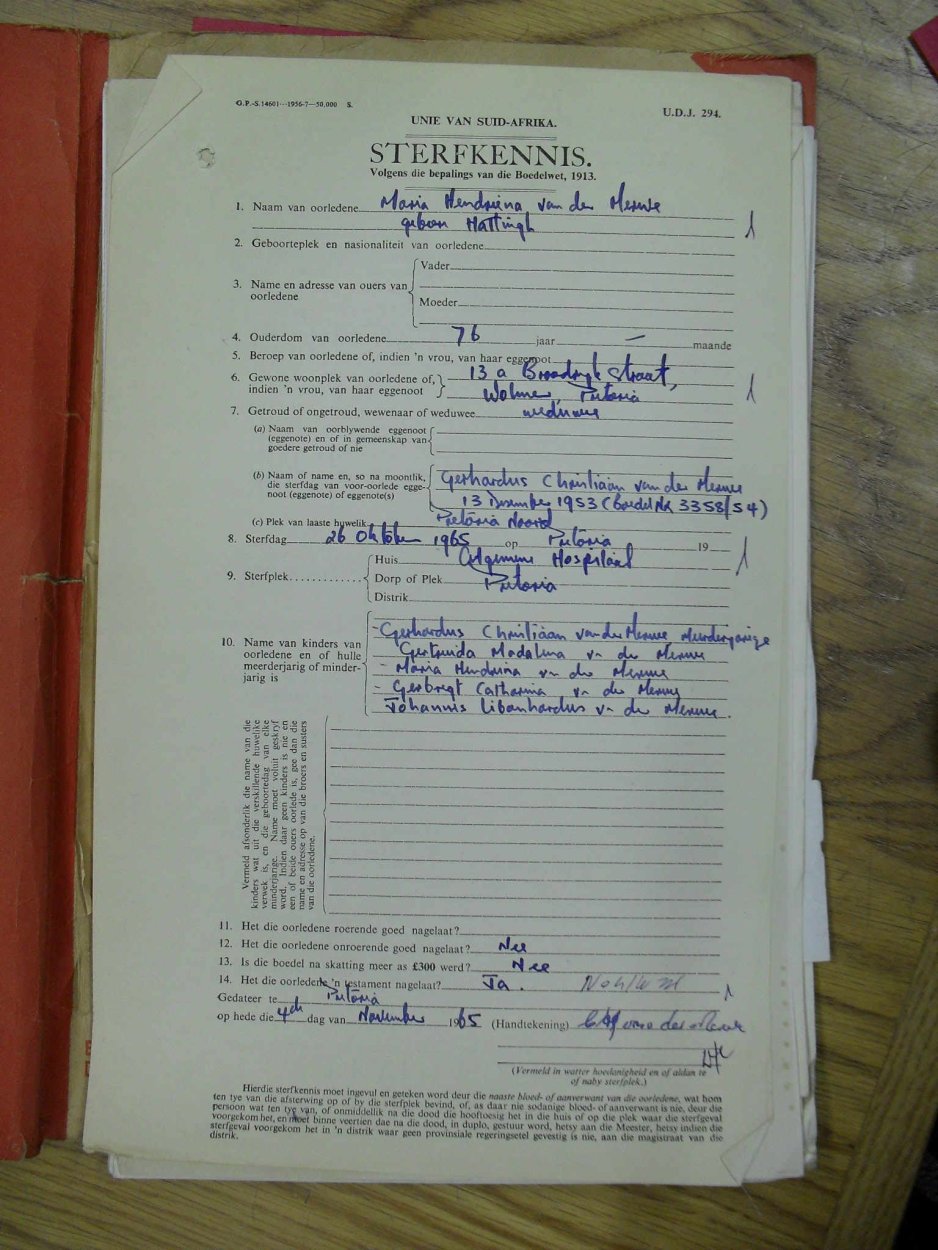 G.P.-S.14601—1956-7—50,000 S.
U.D.J. 294.
UNIE VAN SUID-AFRIKA.
STERFKENNIS.
Volgens die bepalings van die Boedelwet, 1913.
1. Naam van oorledene Maria Hendriena van der Merwe
gebore Hattingh
2. Geboorteplek en nasionaliteit van oorledene
3. Name en adresse van ouers van oorledene
Vader
Moeder
4. Ouderdom van oorledene 76 jaar — maande
5. Beroep van oorledene of, indien 'n vrou, van haar eggenoot
6. Gewone woonplek van oorledene of, indien 'n vrou, van haar eggenoot
13 a Broodryk Straat,
Wolmer, Pretoria
7. Getroud of ongetroud, wewenaar of weduwee weduwee
(a) Naam van oorblywende eggenoot (eggenote) en of in gemeenskap van goedere getroud of nie
(b) Naam of name en, so na moontlik, die sterfdag van voor-oorlede eggenoot (eggenote) of eggenote(s)
Gerhardus Christiaan van der Merwe
13 Desember 1953 (Boedel No. 3358/54)
(c) Plek van laaste huwelik Pretoria Noord
8. Sterfdag 26 Oktober 1965 op Pretoria 19
9. Sterfplek
Huis Algemene Hospitaal
Dorp of Plek Pretoria
Distrik
10. Name van kinders van oorledene en of hulle meerderjarig of minderjarig is
- Gerhardus Christiaan van der Merwe Meerderjarige
Gertruida Madalena v-n der Merwe
- Maria Hendrina v-n der Merwe
- Gerbregt Catharina v-n der Merwe
Johannis Libenhardus v-n der Merwe.
Vermeld afsonderlik die name van die
kinders wat uit die verskillende huwelike
verwek is, en die geboortedag van elke
minderjarige. Name moet voluit geskryf
word. Indien daar geen kinders is nie en
een of beide ouers oorlede is, gee dan die
name en adresse op van die broers en susters
van die oorledene.
11. Het die oorledene roerende goed nagelaat?
12. Het die oorledene onroerende goed nagelaat? Nee
13. Is die boedel na skatting meer as £300 werd? Nee
14. Het die oorledene 'n testament nagelaat? Ja.
Gedateer te Pretoria
op hede die 4de dag van November 1965 (Handtekening) van der Merwe
(Vermeld in watter hoedanigheid en of aldan te
of naby sterfplek.)
Hierdie sterfkennis moet ingevul en geteken word deur die naaste bloed- of aanverwant van die oorledene, wat hom
ten tye van die afsterwing op of by die sterfplek bevind, of, as daar nie sodanige bloed- of aanverwant is nie, deur die
persoon wat ten tye van, of onmiddellik na die dood die hoofbesig het in die huis of op die plek waar die sterfgeval
voorgekom het, en moet binne veertien dae na die dood, in duplo, gestuur word, hetsy aan die Meester, hetsy indien die
sterfgeval voorgekom het in 'n distrik waar geen provinsiale regeringsetel gevestig is nie, aan die magistraat van die
distrik.